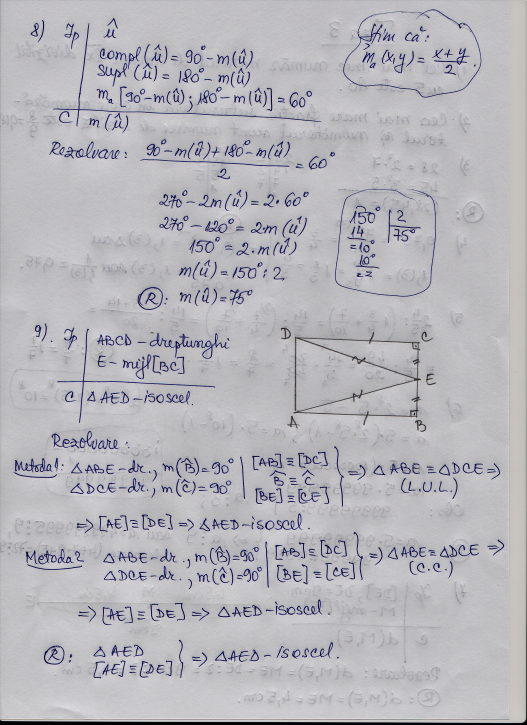 8) Ip | û
compl(û) = 90° - m(û)
supl(û) = 180° - m(û)
mₐ[90° - m(û); 180° - m(û)] = 60°
C | m(û)
Știm că:
mₐ(x,y) = x+y/2.
Rezolvare: 90° - m(û) + 180° - m(û)/2 = 60°
270° - 2m(û) = 2·60°
270° - 120° = 2m(û)
150° = 2·m(û)
m(û) = 150° : 2
Ⓡ: m(û) = 75°
150° | 2
14 | 75°
=10°
10°
==
9). Ip | ABCD - dreptunghi
E - mijl[BC]
C | △AED - isoscel.
D C
E
A B
Rezolvare:
Metoda 1: △ABE - dr., m(B̂) = 90° | [AB] ≡ [DC]
△DCE - dr., m(Ĉ) = 90° | B̂ ≡ Ĉ } ⇒ △ABE ≡ △DCE ⇒
[BE] ≡ [CE] (L.U.L.)
⇒ [AE] ≡ [DE] ⇒ △AED - isoscel.
Metoda 2 △ABE - dr., m(B̂) = 90° | [AB] ≡ [DC] } ⇒ △ABE ≡ △DCE ⇒
△DCE - dr., m(Ĉ) = 90° | [BE] ≡ [CE] (C.C.)
⇒ [AE] ≡ [DE] ⇒ △AED - isoscel.
Ⓡ: △AED
[AE] ≡ [DE] } ⇒ △AED - isoscel.